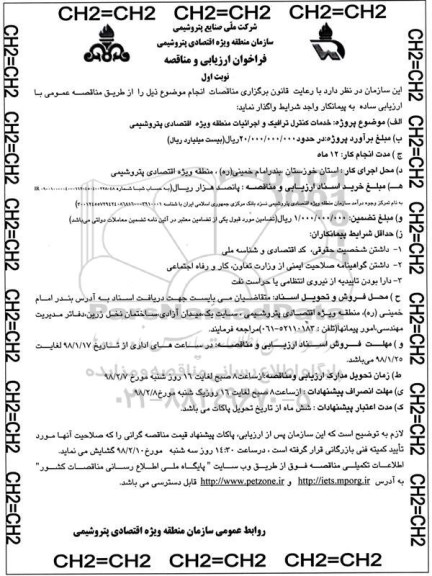 CH2=CH2 CH2=CH2 CH2=CH2
شرکت ملی صنایع پتروشیمی
سازمان منطقه ویژه اقتصادی پتروشیمی
فراخوان ارزیابی و مناقصه
نوبت اول
این سازمان در نظر دارد با رعایت قانون برگزاری مناقصات انجام موضوع ذیل را از طریق مناقصه عمومی با
ارزیابی ساده به پیمانکار واجد شرایط واگذار نماید:
الف) موضوع پروژه: خدمات کنترل ترافیک و اجرائیات منطقه ویژه اقتصادی پتروشیمی
ب) مبلغ برآورد پروژه: در حدود ۲۰/۰۰۰/۰۰۰/۰۰۰ریال(بیست میلیارد ریال)
ج ) مدت انجام کار: ۱۲ ماه
د) محل اجرای کار : استان خوزستان بندرامام خمینی(ره) ، منطقه ویژه اقتصادی پتروشیمی
هـ) مبلغ خرید اسناد ارزیابی و مناقصه : پانصد هزار ریال(به حساب شبا شماره
به نام تمرکز وجوه درآمد سازمان منطقه ویژه اقتصادی پتروشیمی نزد بانک مرکزی جمهوری اسلامی ایران با شناسه
و) مبلغ تضمین: ۱/۰۰۰/۰۰۰/۰۰۰ ریال(تضامین مورد قبول یکی از تضامین معتبر در آئین نامه تضمین معاملات دولتی می‌باشد)
ز) حداقل شرایط پیمانکاران:
۱- داشتن شخصیت حقوقی، کد اقتصادی و شناسه ملی
۲- داشتن گواهینامه صلاحیت ایمنی از وزارت تعاون، کار و رفاه اجتماعی
۳- دارا بودن تأییدیه از نیروی انتظامی یا حراست نفت
ح ) محل فروش و تحویل اسناد: متقاضیان می بایست جهت دریافت اسناد به آدرس بندر امام
خمینی (ره)، منطقه ویژه اقتصادی پتروشیمی ، سایت یک میدان آزادی ساختمان نخل زرین، دفاتر مدیریت
مهندسی، امور پیمانها(تلفن : ۵۲۱۱۰۱۸۳-۰۶۱)مراجعه فرمایند.
و) مهلت فروش اسناد ارزیابی و مناقصه: در ساعت های اداری از تاریخ ۹۸/۱/۱۷ لغایت
۹۸/۱/۲۵ می‌باشد.
ط) زمان تحویل مدارک ارزیابی ومناقصه: ازساعت۸ صبح لغایت ۱۶ روز شنبه مورخ ۹۸/۲/۷
ی) مهلت انصراف پیشنهادات : ازساعت۸ صبح لغایت ۱۶ روزیک شنبه مورخ۹۸/۲/۸
ک) مدت اعتبار پیشنهادات : شش ماه از تاریخ تحویل پاکات می باشد.
لازم به توضیح است که این سازمان پس از ارزیابی، پاکات پیشنهاد قیمت مناقصه گرانی را که صلاحیت آنها مورد
تأیید کمیته فنی بازرگانی قرار گرفته است ، درساعت ۱۴:۳۰ روز سه شنبه مورخ ۹۸/۲/۱۰ گشایش می نماید.
اطلاعات تکمیلی مناقصه فوق از طریق وب سایت " پایگاه ملی اطلاع رسانی مناقصات کشور"
به آدرس http://iets.mporg.ir و http://www.petzone.ir قابل دسترسی می باشد.
روابط عمومی سازمان منطقه ویژه اقتصادی پتروشیمی
CH2=CH2 CH2=CH2 CH2=CH2